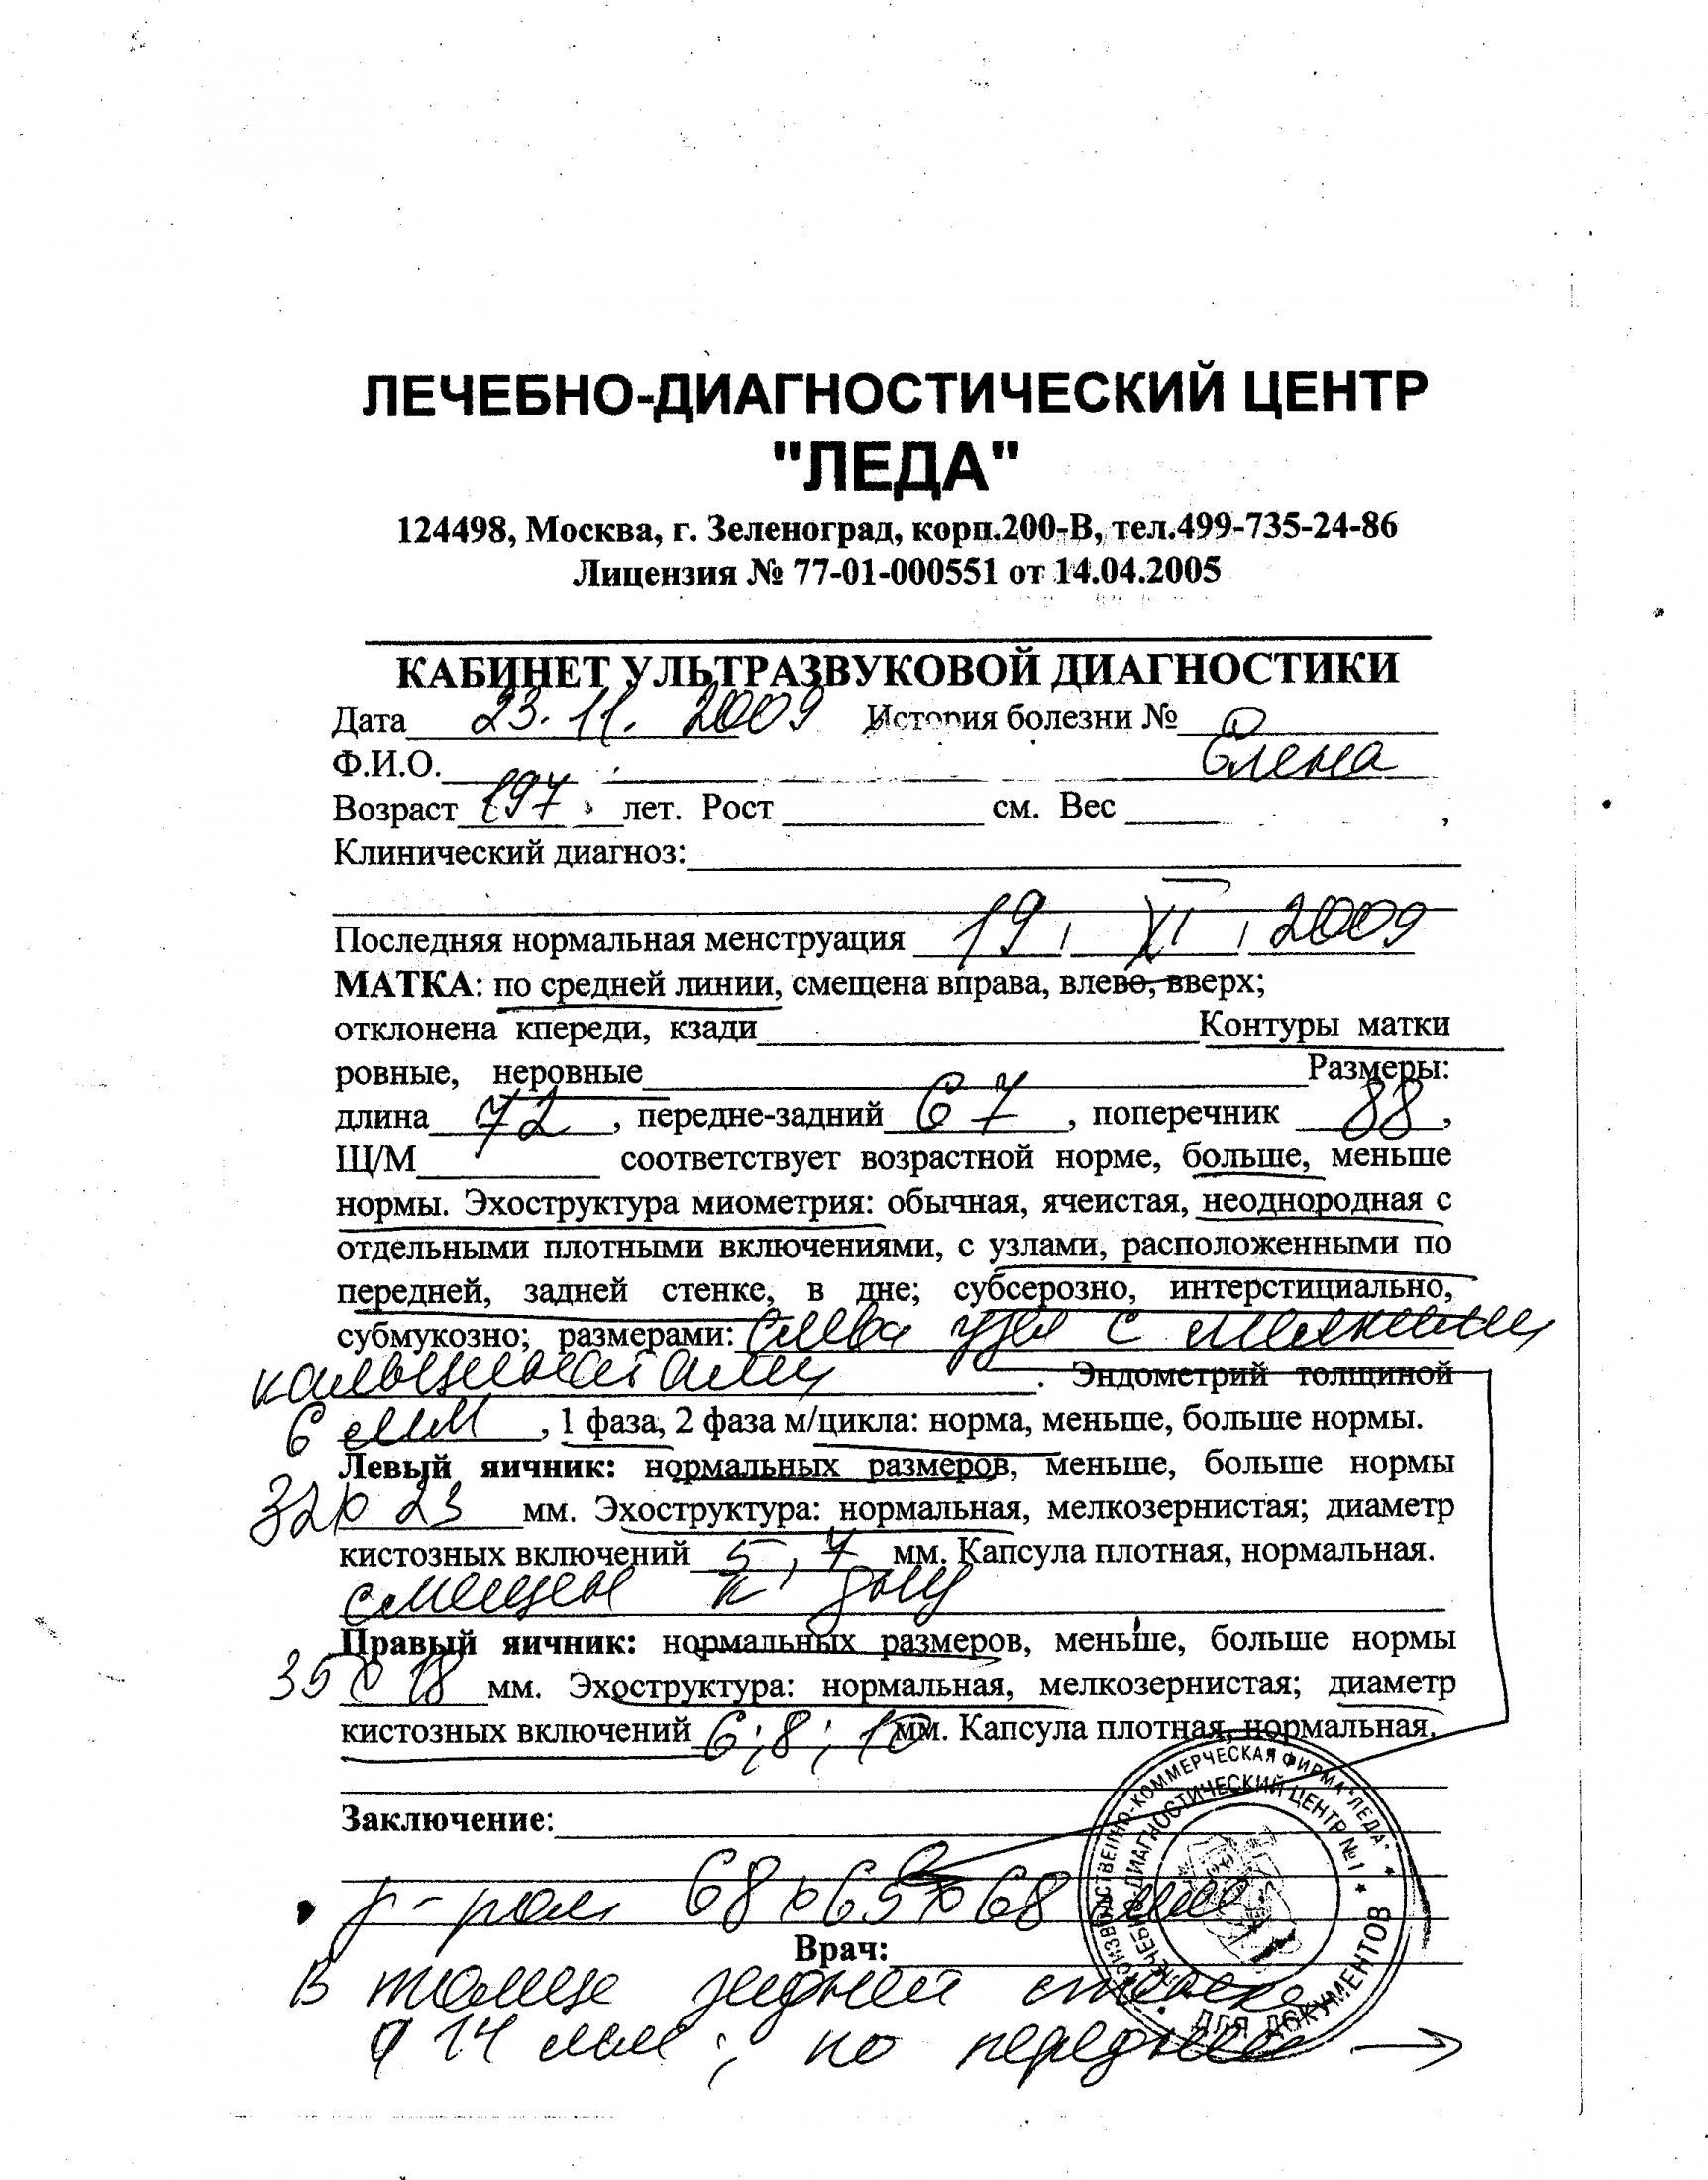 ЛЕЧЕБНО-ДИАГНОСТИЧЕСКИЙ ЦЕНТР
"ЛЕДА"
124498, Москва, г. Зеленоград, корп.200-В, тел.499-735-24-86
Лицензия № 77-01-000551 от 14.04.2005
КАБИНЕТ УЛЬТРАЗВУКОВОЙ ДИАГНОСТИКИ
Дата 23.11.2009 История болезни №
Ф.И.О. Елена
Возраст 197 лет. Рост см. Вес
Клинический диагноз:
Последняя нормальная менструация 19, XI, 2009
МАТКА: по средней линии, смещена вправа, влево, вверх;
отклонена кпереди, кзади Контуры матки
ровные, неровные Размеры:
длина 72, передне-задний 67, поперечник 88,
Щ/М соответствует возрастной норме, больше, меньше
нормы. Эхоструктура миометрия: обычная, ячеистая, неоднородная с
отдельными плотными включениями, с узлами, расположенными по
передней, задней стенке, в дне; субсерозно, интерстициально,
субмукозно; размерами: слева узел с мелкими
кальцинатами. Эндометрий толщиной
6 мм, 1 фаза, 2 фаза м/цикла: норма, меньше, больше нормы.
Левый яичник: нормальных размеров, меньше, больше нормы
32х23 мм. Эхоструктура: нормальная, мелкозернистая; диаметр
кистозных включений 5, 7 мм. Капсула плотная, нормальная.
смещен к дну
Правый яичник: нормальных размеров, меньше, больше нормы
35х18 мм. Эхоструктура: нормальная, мелкозернистая; диаметр
кистозных включений 6; 8; 10 мм. Капсула плотная, нормальная.
Заключение:
р-рам 68х65х68 мм
Врач:
В толще задней стенке
14 мм; по передней
ПРОИЗВОДСТВЕННО-КОММЕРЧЕСКАЯ ФИРМА "ЛЕДА"
ЛЕЧЕБНО-ДИАГНОСТИЧЕСКИЙ ЦЕНТР №1
ДЛЯ ДОКУМЕНТОВ